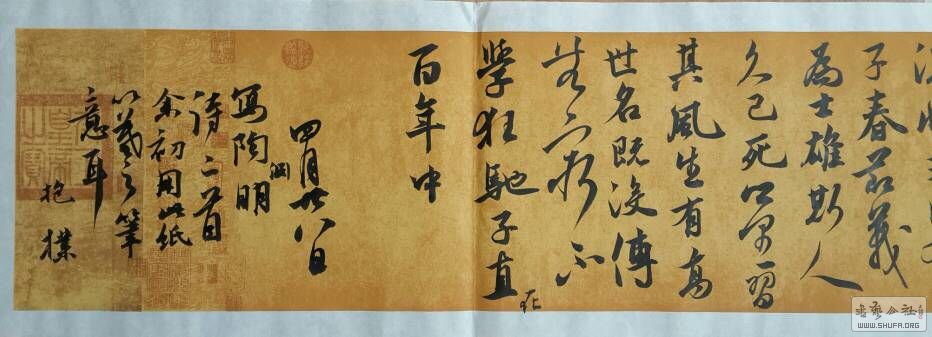 子春節義
為士雄斯人
久已死鄉里習
其風生有高
世名既没傳
無窮不
學狂馳子直在
百年中
四月廿八日
寫陶淵明
詩二首
余初用此紙
以羲之筆
意耳
抱樸
書藝公社
WWW.SHUFA.ORG